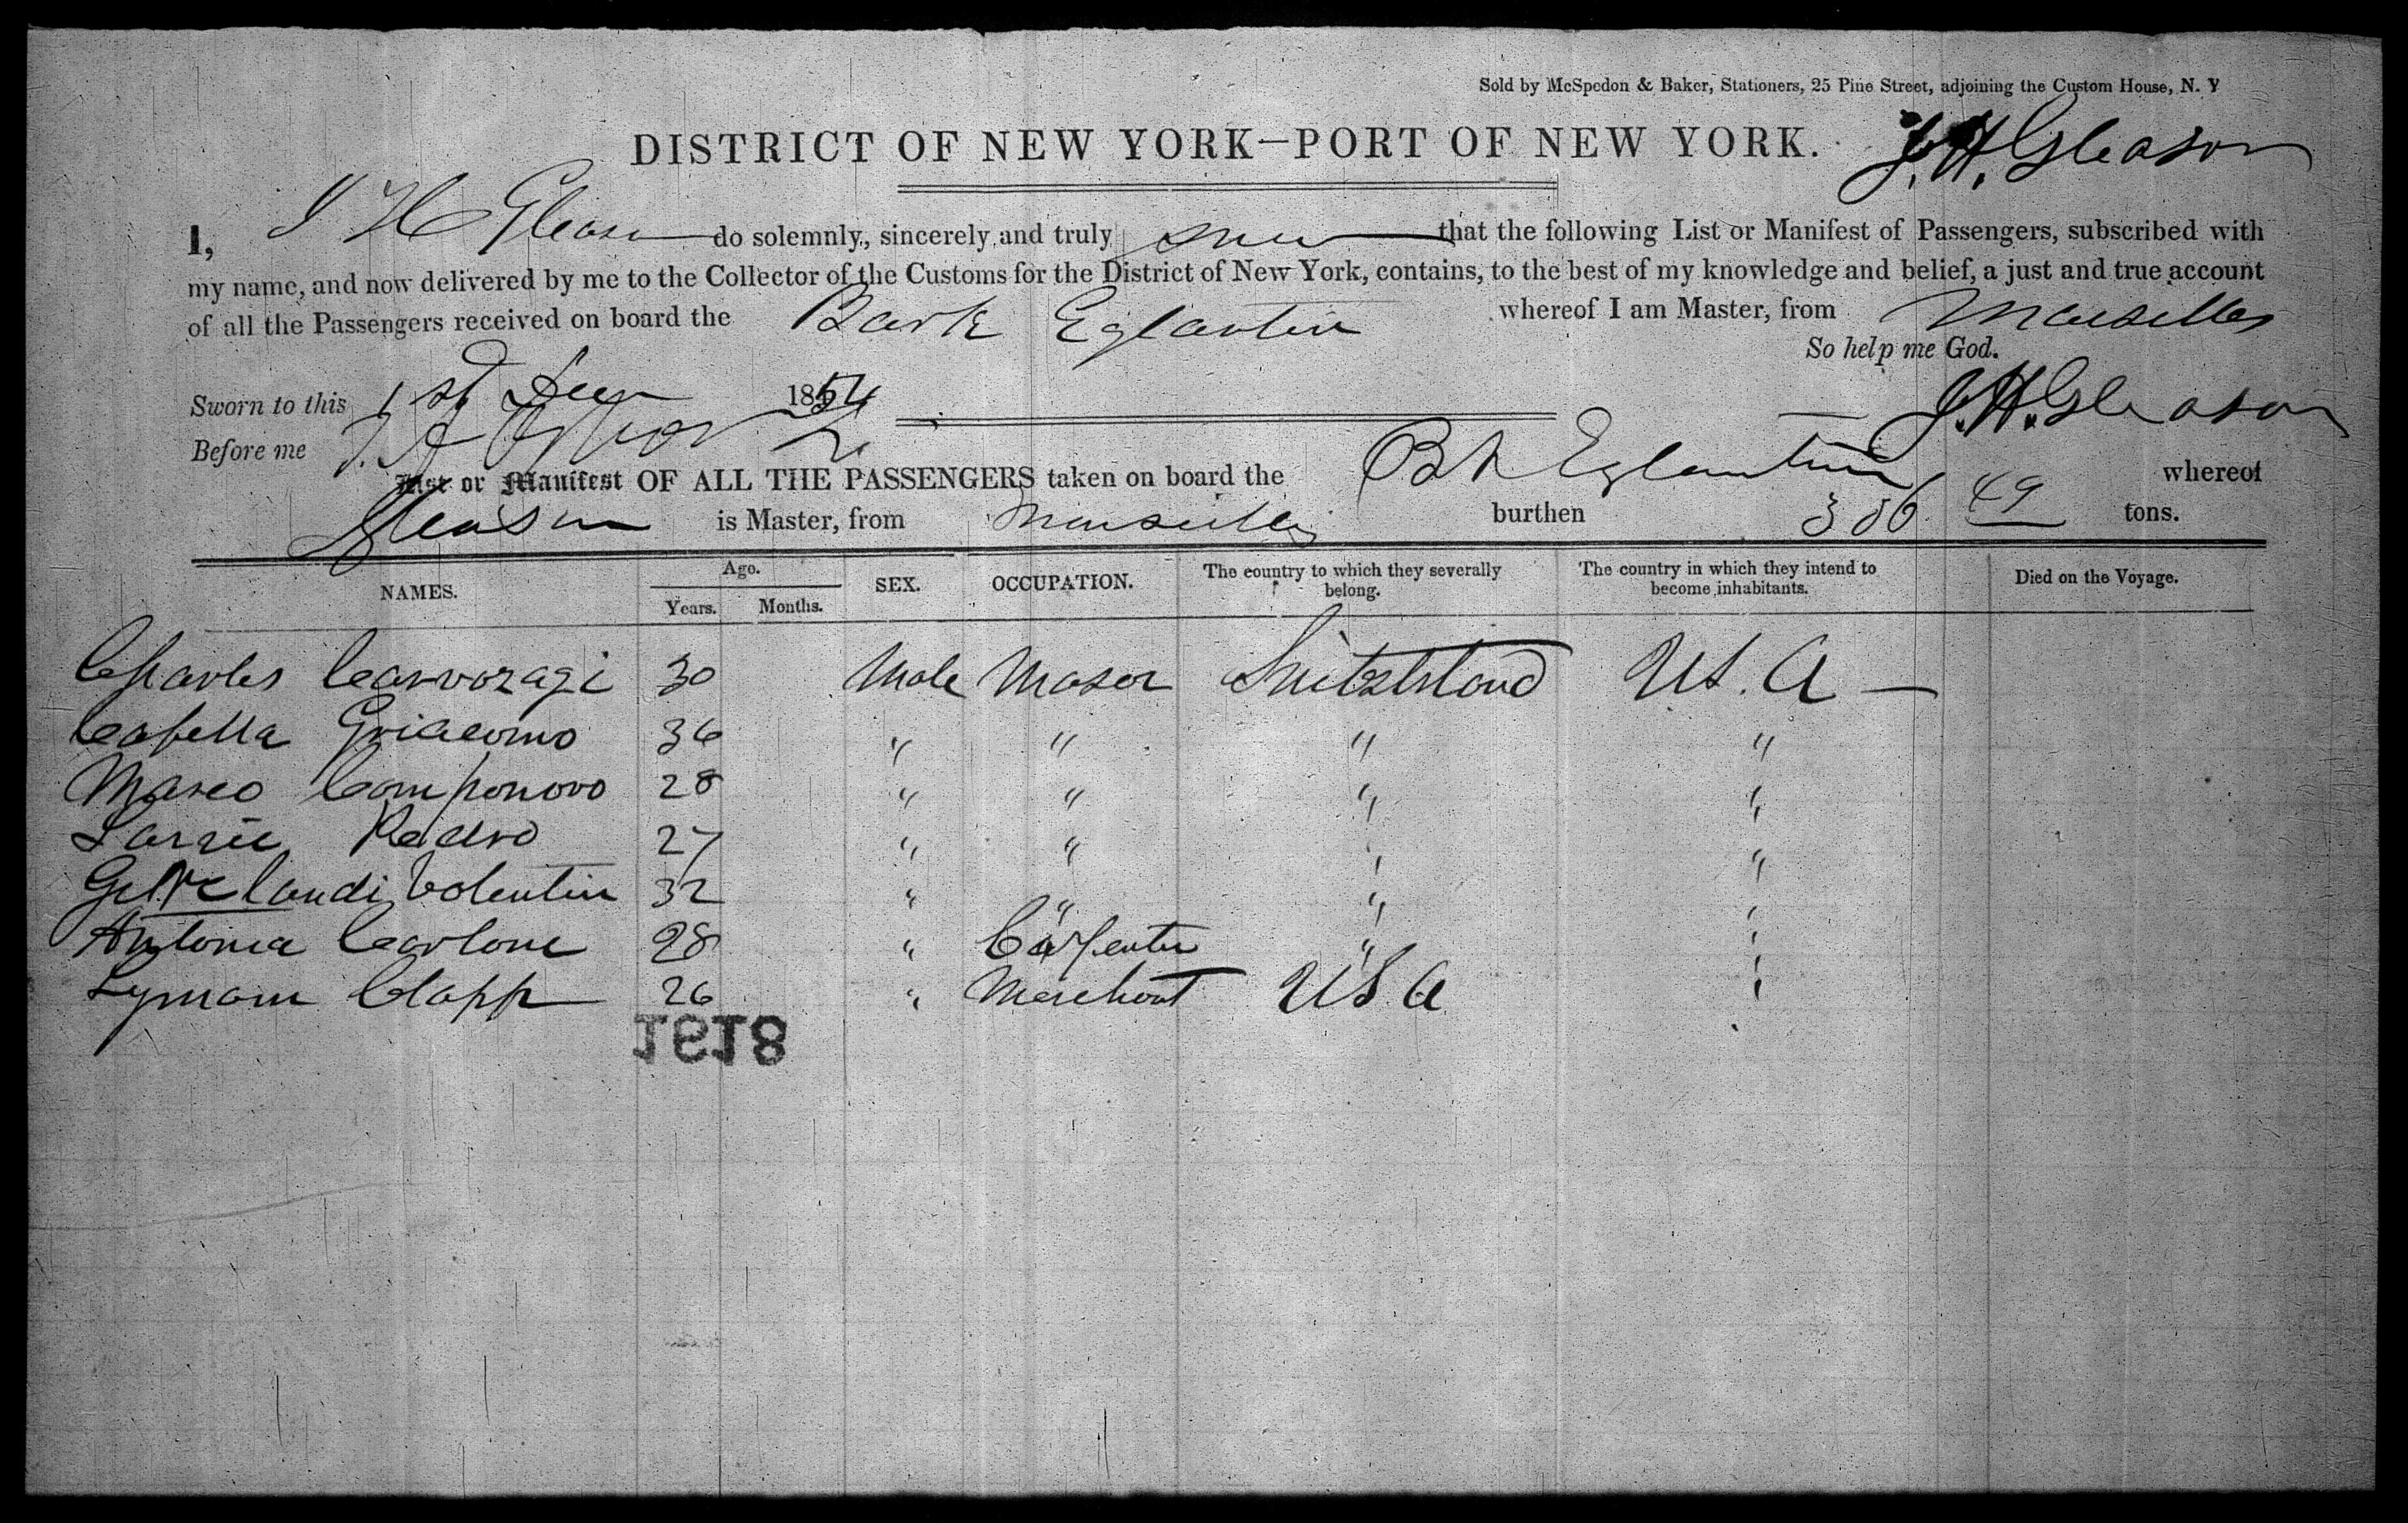 Sold by McSpedon & Baker, Stationers, 25 Pine Street, adjoining the Custom House, N. Y
DISTRICT OF NEW YORK—PORT OF NEW YORK. J. H. Gleason
I, J H Gleason do solemnly, sincerely and truly swear that the following List or Manifest of Passengers, subscribed with
my name, and now delivered by me to the Collector of the Customs for the District of New York, contains, to the best of my knowledge and belief, a just and true account
of all the Passengers received on board the Bark Eglantin whereof I am Master, from Marseilles
So help me God.
Sworn to this 1st Dec 1854 J. H. Gleason
Before me
List or Manifest OF ALL THE PASSENGERS taken on board the Bk Eglantine whereof
Gleason is Master, from Marseilles burthen 386 49 tons.
NAMES. Age. SEX. OCCUPATION. The country to which they severally belong. The country in which they intend to become inhabitants. Died on the Voyage.
Years. Months.
Charles Carvoragi 30 Male Mason Switzeland U S. A —
Capella Griacomo 36 " " " "
Marco Componovo 28 " " " "
Pedro 27 " " " "
Valentin 32 " " " "
Antonia Carlone 28 " Carpenter " "
Lyman Clapp 26 " Merchant U S A "
1818